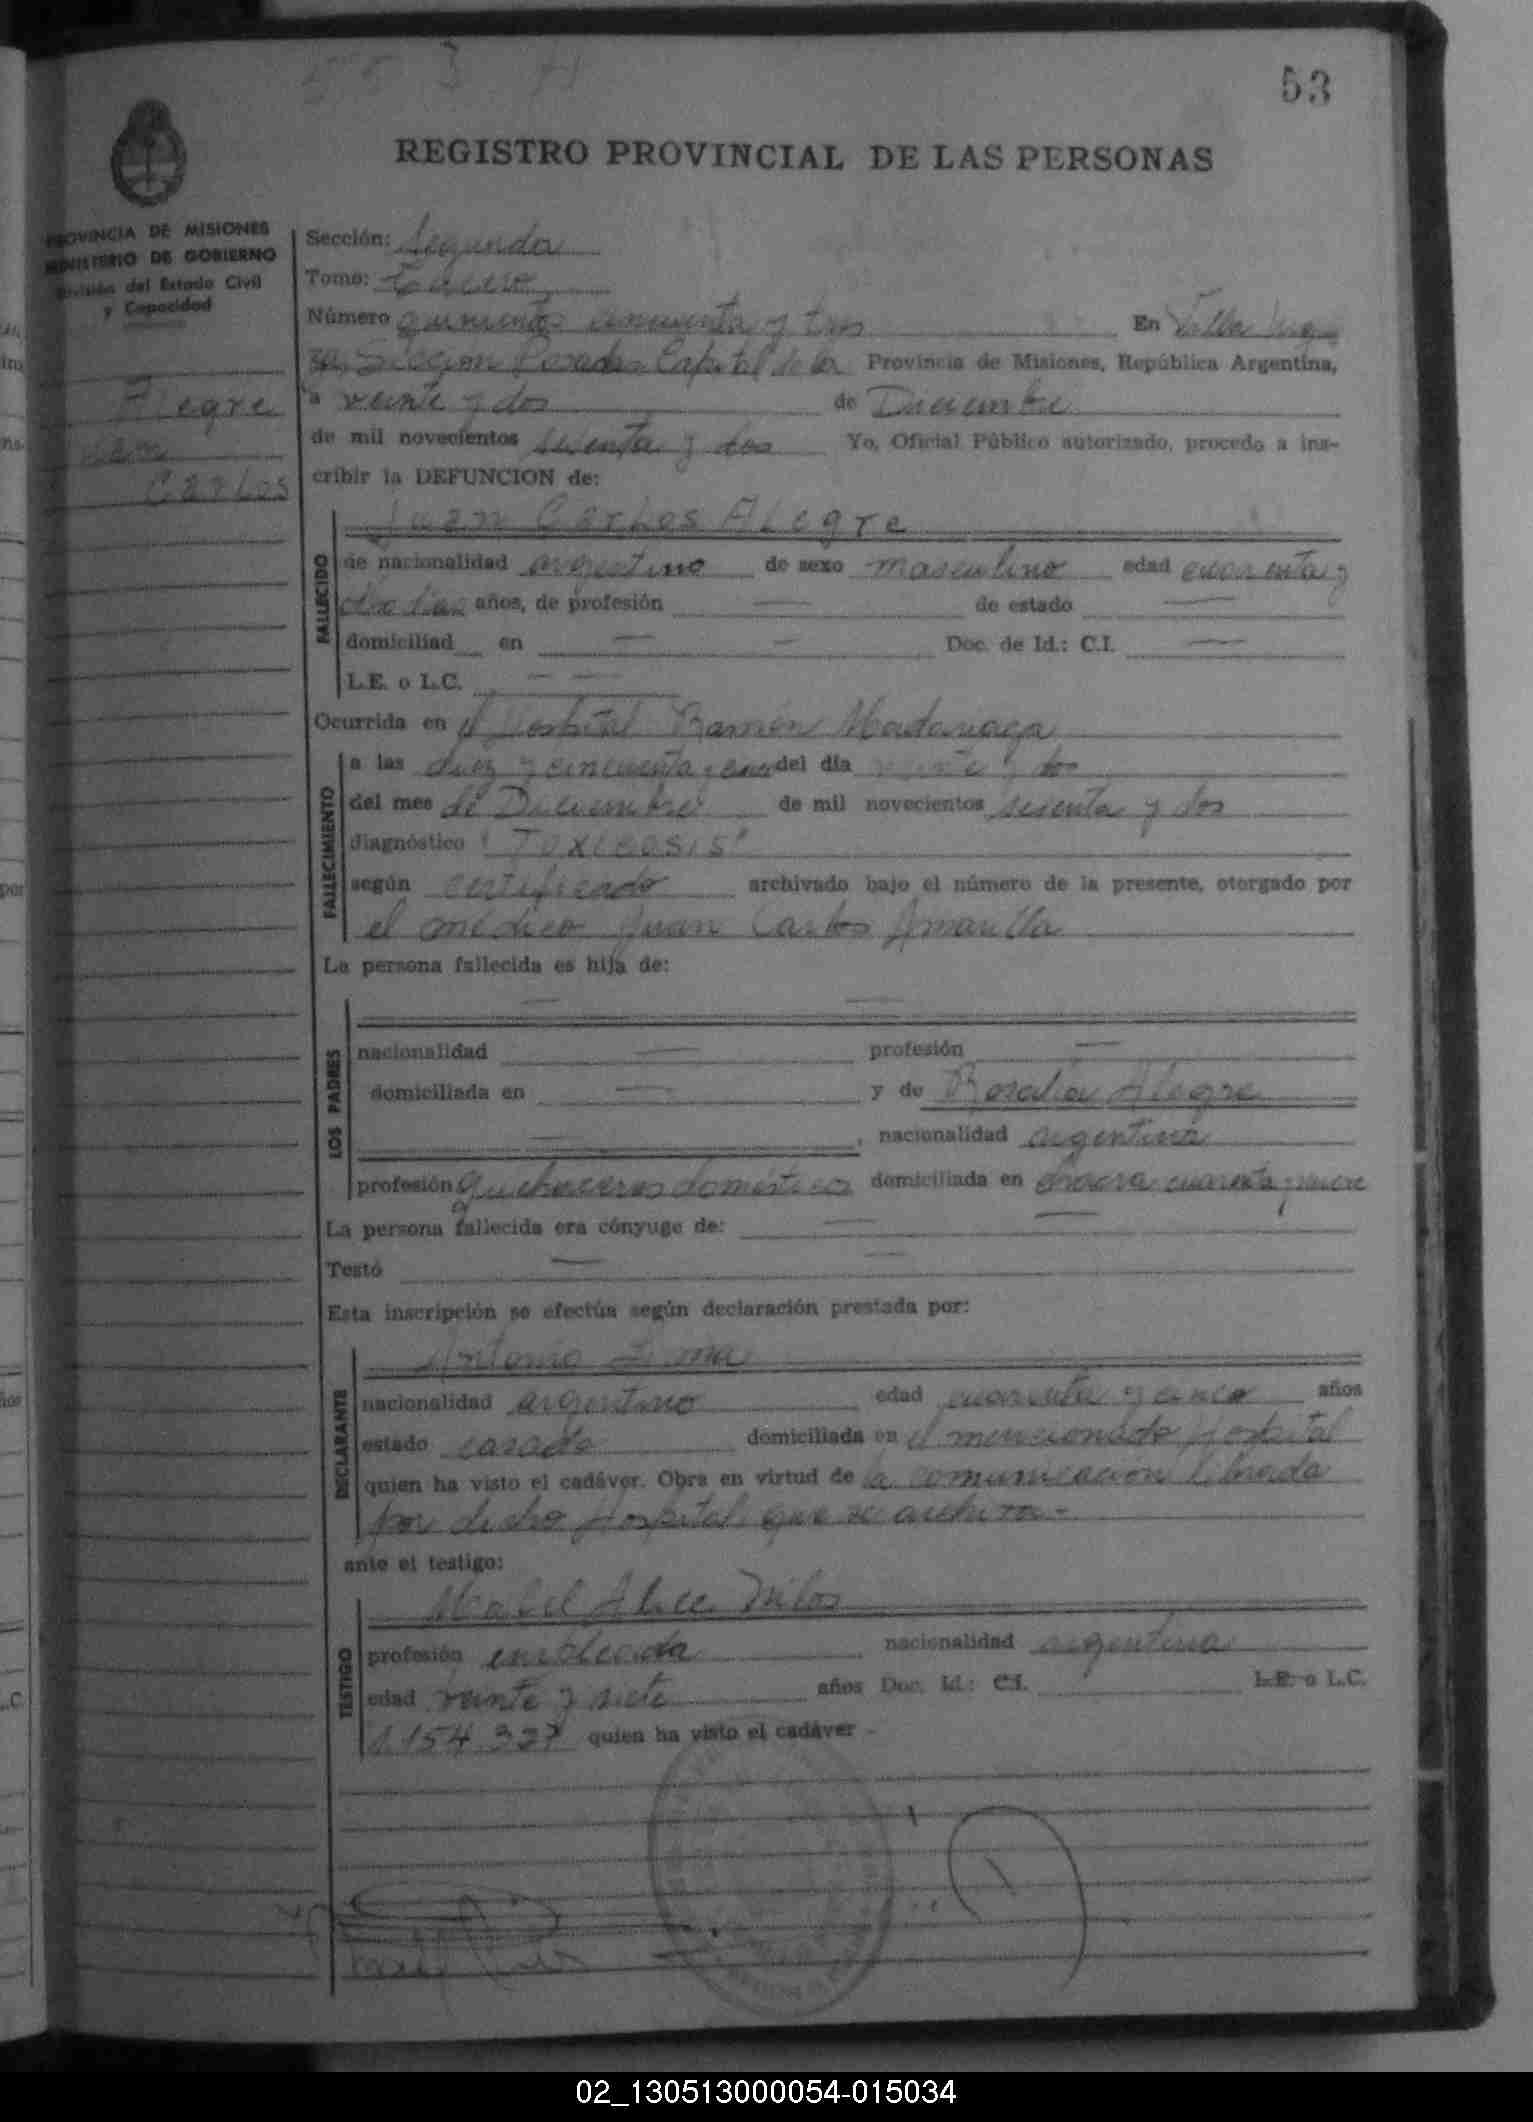 553 A
53
REGISTRO PROVINCIAL DE LAS PERSONAS
PROVINCIA DE MISIONES
MINISTERIO DE GOBIERNO
División del Estado Civil
y Capacidad
Alegre
Juan
Carlos
Sección: Segunda
Tomo: Tercero
Número quinientos cincuenta y tres En Villa
Sección Posadas Capital de la Provincia de Misiones, República Argentina,
a veinte y dos de Diciembre
de mil novecientos sesenta y dos Yo, Oficial Público autorizado, procedo a ins-
cribir la DEFUNCION de:
Juan Carlos Alegre
FALLECIDO
de nacionalidad argentino de sexo masculino edad cuarenta y
ocho días años, de profesión — de estado —
domiciliad en — — Doc. de Id.: C.I. —
L.E. o L.C. — —
Ocurrida en el Hospital Ramón Madariaga
FALLECIMIENTO
a las diez y cincuenta y del día veinte y dos
del mes de Diciembre de mil novecientos sesenta y dos
diagnóstico "Toxicosis"
según certificado archivado bajo el número de la presente, otorgado por
el médico Juan Carlos Amarilla
La persona fallecida es hija de:
LOS PADRES
— —
nacionalidad — profesión —
domiciliada en — y de Rosalía Alegre
— , nacionalidad argentina
profesión quehaceres domésticos domiciliada en chacra cuarenta y nueve
La persona fallecida era cónyuge de: — —
Testó — —
Esta inscripción se efectúa según declaración prestada por:
DECLARANTE
Antonio
nacionalidad argentino edad cuarenta y cinco años
estado casado domiciliada en el mencionado Hospital
quien ha visto el cadáver. Obra en virtud de la comunicación librada
por dicho Hospital que se archiva.-
ante el testigo:
TESTIGO
Mabel Alice Milos
profesión empleada nacionalidad argentina
edad veinte y siete años Doc. Id.: C.I. L.E. o L.C.
1.154.337 quien ha visto el cadáver -
02_130513000054-015034